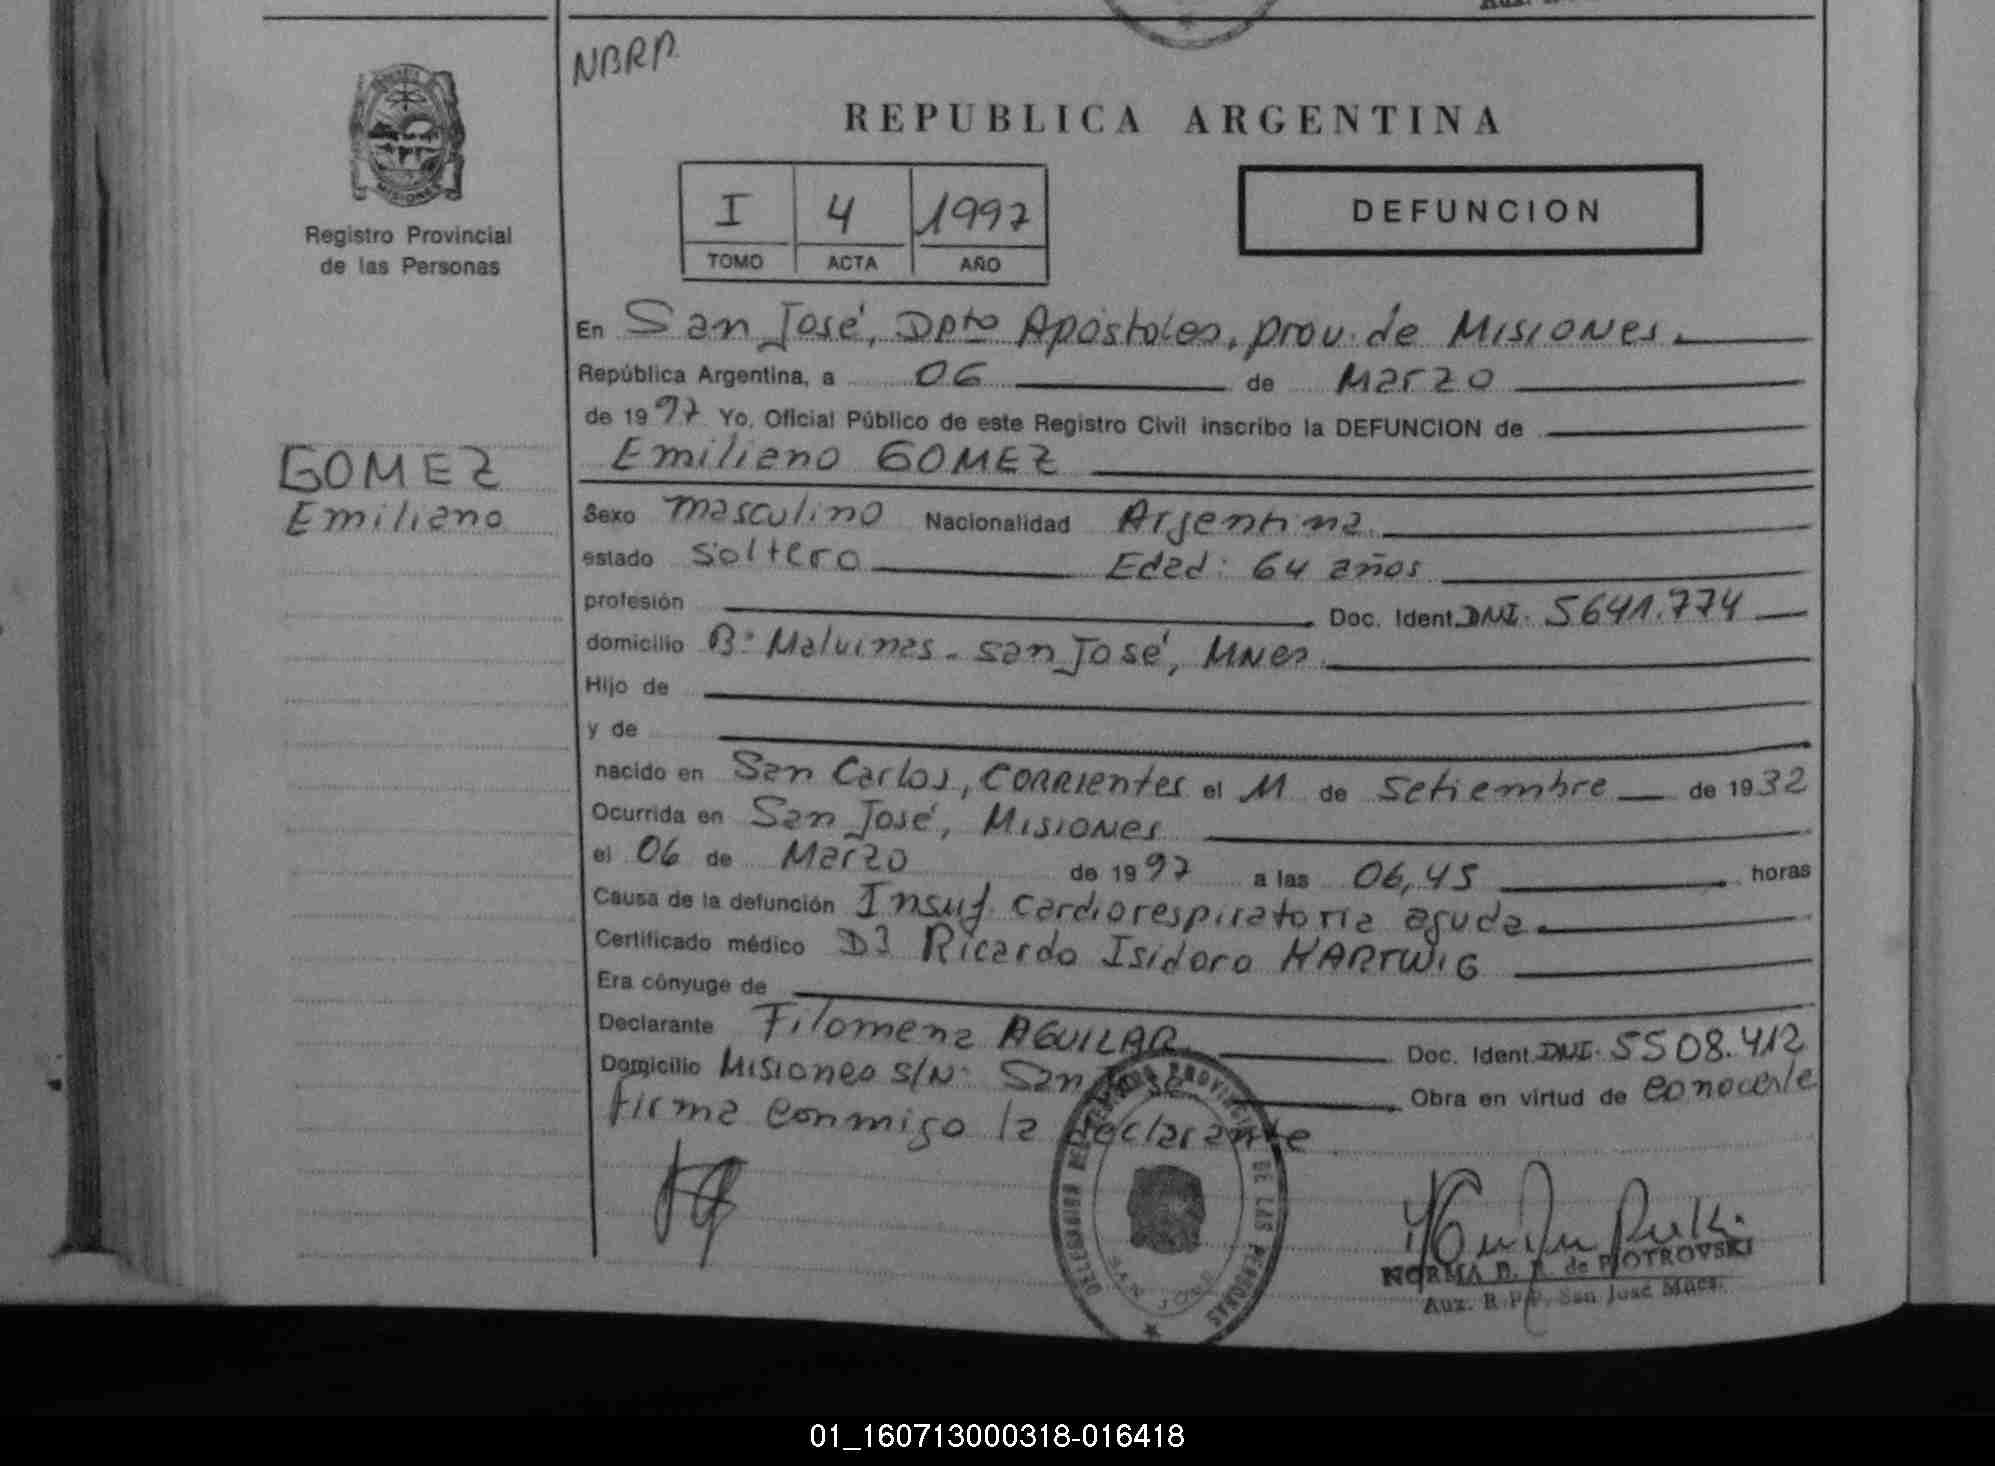 NBRP.
REPUBLICA ARGENTINA
Registro Provincial
de las Personas
I 4 1997
TOMO ACTA AÑO
DEFUNCION
En San José, Dpto Apóstoles, prov. de Misiones.
República Argentina, a 06 de Marzo
de 1997 Yo, Oficial Público de este Registro Civil inscribo la DEFUNCION de
Emiliano GOMEZ
GOMEZ
Emiliano
Sexo masculino Nacionalidad Argentina.
estado soltero Edad: 64 años
profesión Doc. Ident. DNI. 5641.774
domicilio B° Malvinas - San José, Mnes.
Hijo de
y de
nacido en San Carlos, Corrientes el 11 de Setiembre de 1932
Ocurrida en San José, Misiones
el 06 de Marzo de 1997 a las 06,45 horas
Causa de la defunción Insuf. cardiorespiratoria aguda
Certificado médico Dr Ricardo Isidoro HARTWIG
Era cónyuge de
Declarante Filomena AGUILAR Doc. Ident. DNI. 5508.412
Domicilio Misiones s/N° San José Obra en virtud de conocerle
firma conmigo la declarante
DELEGACION REGISTRO PROVINCIAL DE LAS PERSONAS
SAN JOSE
NORMA B. R. de PIOTROVSKI
Aux. R.P.P. San José Mnes.
01_160713000318-016418